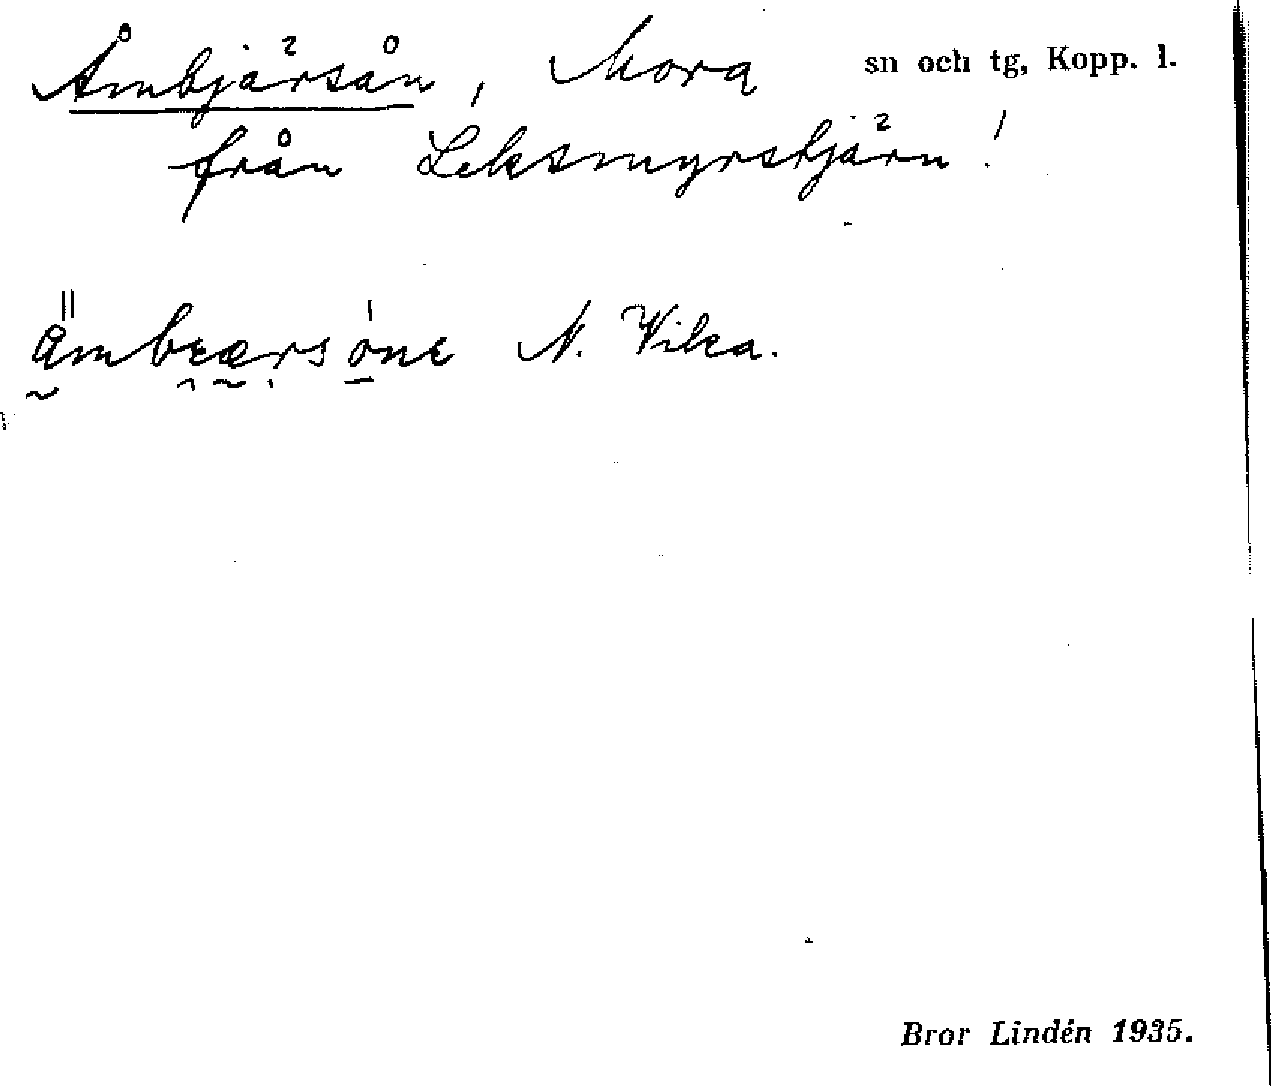 Åmbjärsån, Mora sn och tg, Kopp. l.
från Leksmyrstjärn!
N. Vika.
Bror Lindén 1935.